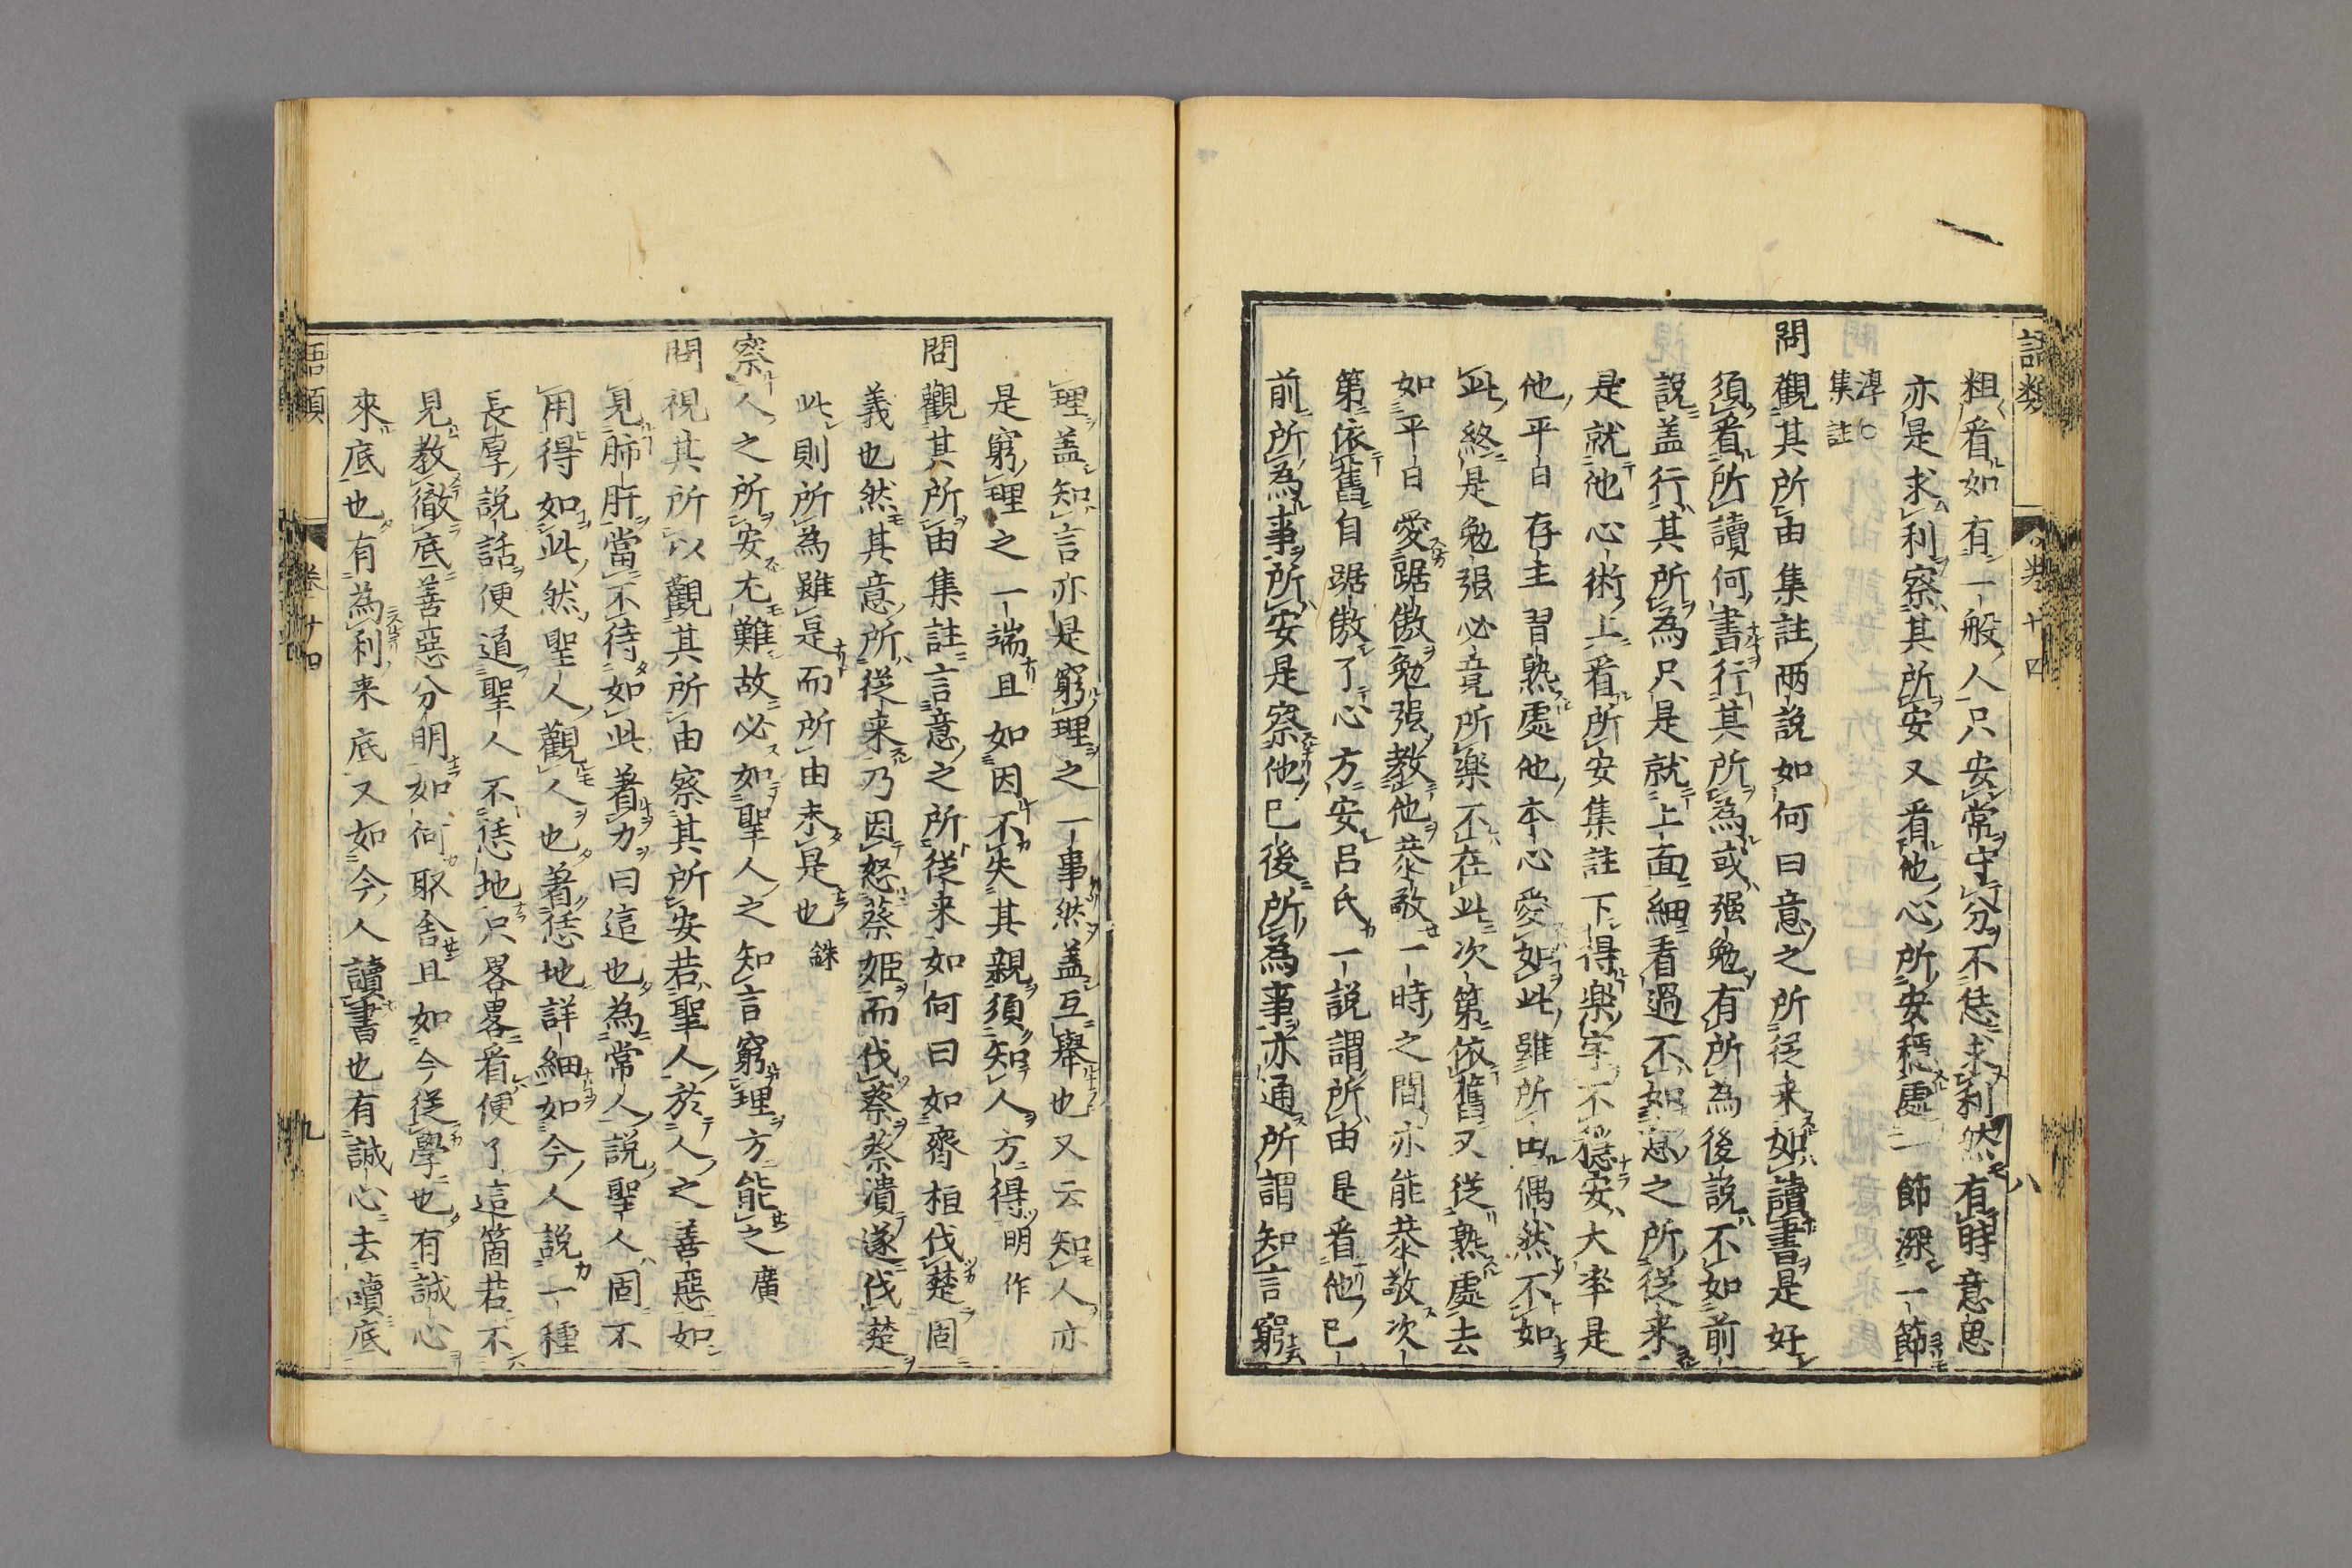 語類
卷十四
八
粗看如有一般人只安常守分不恁求利然有時意思
亦是求利察其所安又看他心所安穩處一節深一節
淳○集註
問觀其所由集註両說如何曰意之所従来如讀書是好
須看所讀何書行其所為或强勉有所為後說不如前
說盖行其所為只是就上面細看過不如意之所従来
是就他心術上看所安集註下得楽字不穩安大率是
他平日存主習熟處他本心愛如此雖所由偶然不如
此終是勉强必竟所楽不在此次第依舊又従熟處去
如平日愛踞傲勉强教他恭敬一時之間亦能恭敬次
第依舊自踞傲了心方安吕氏一說謂所由是看他已
前所為事所安是察他已後所為事亦通所謂知言窮
理盖知言亦是窮理之一事然盖互舉也又云知人亦
是窮理之一端且如因不失其親須知人方得明作
問觀其所由集註言意之所従来如何曰如齊桓伐楚固
義也然其意所従来乃因怒蔡姬而伐蔡蔡潰遂伐楚
此則所為雖是而所由未是也銖
察人之所安尤難故必如聖人之知言窮理方能之廣
問視其所以觀其所由察其所安若聖人於人之善惡如
見肺肝當不待如此着力曰這也為常人說聖人固不
用得如此然聖人觀人也着恁地詳細如今人說一種
長厚說話便道聖人不恁地只畧畧看便了這箇若不
見教徹底善惡分明如何取舍且如今従學也有誠心
來底也有為利来底又如今人讀書也有誠心去讀底
語類
卷十四
九